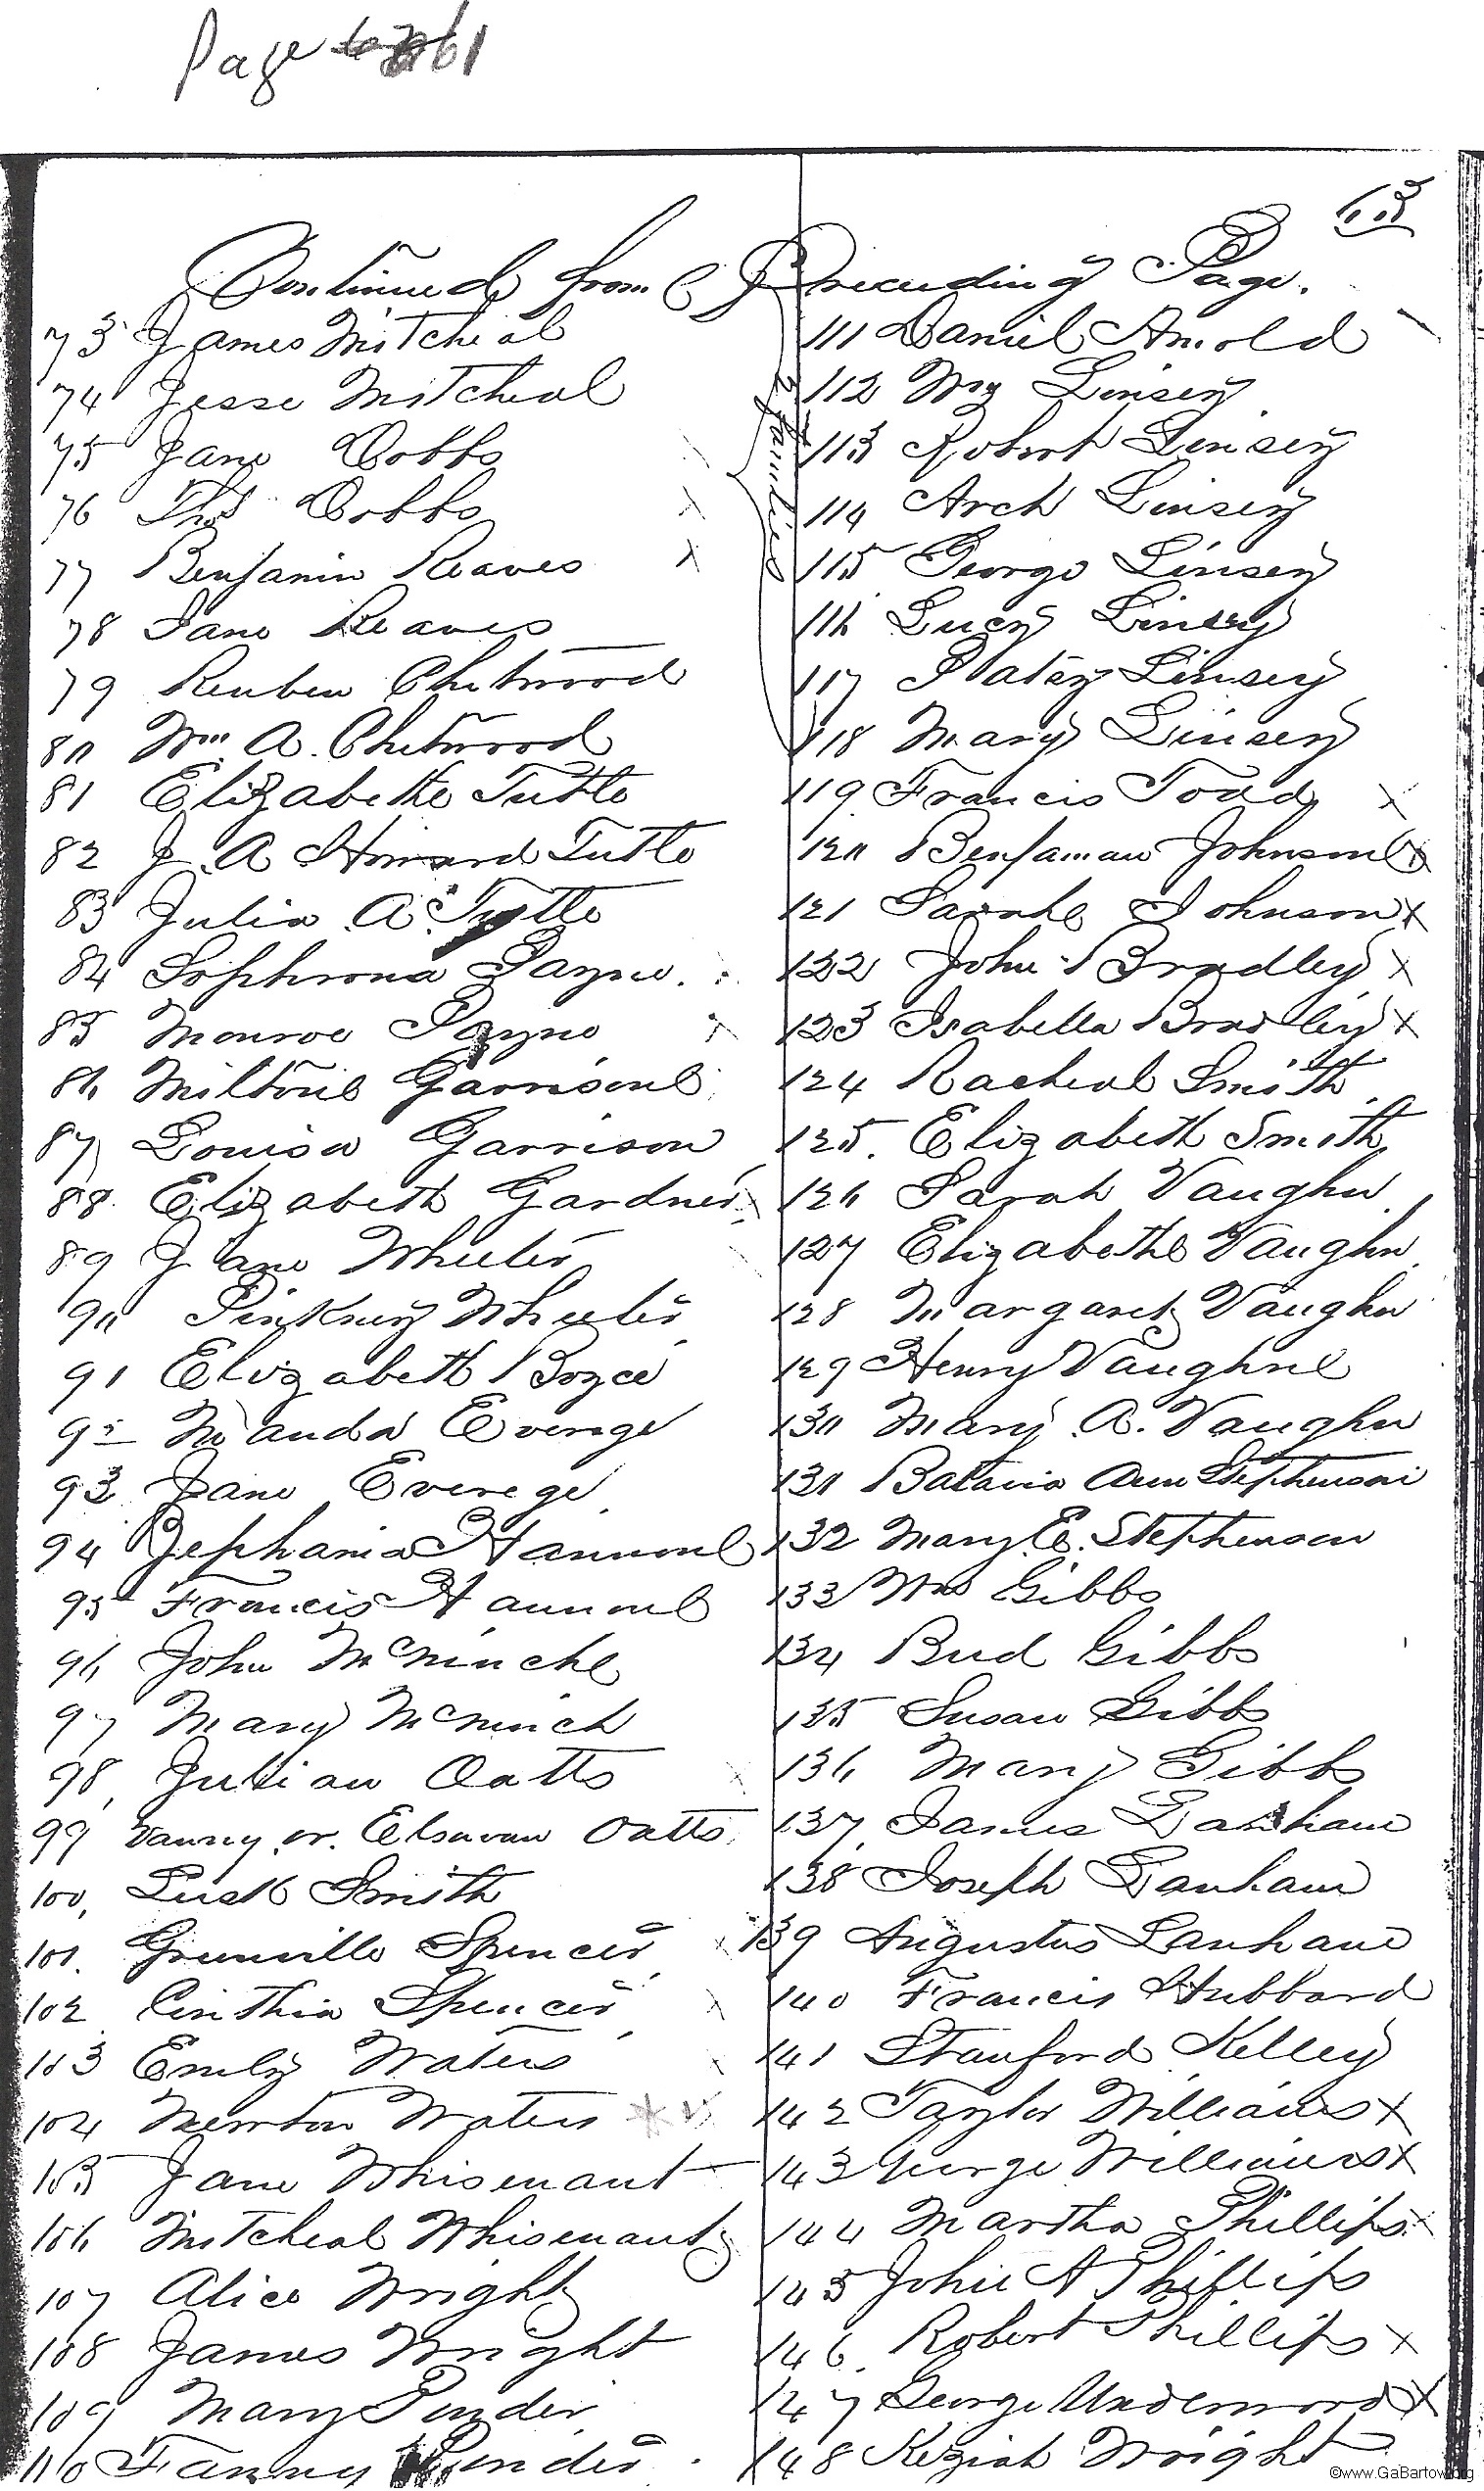 Page 61
63
Continued from Preceeding Page.
73 James Mitcheal
74 Jesse Mitcheal
75 Jane Dobbs
76 Thos Dobbs
77 Benjamin Reaves
78 Jane Reaves
79 Reuben Chitwood
80 Wm A. Chitwood
81 Elizabeth Tuttle
82 J. A Howard Tuttle
83 Julia A Tuttle
84 Sophrona Payne
85 Monroe Payne
86 Milton Garrison
87 Louisa Garrison
88 Elizabeth Gardner
89 Jane Wheeler
90 Pinkney Wheeler
91 Elizabeth Boyce
92 Manda Everege
93 Jane Everege
94 Zephania Hammond
95 Francis Hammond
96 John McNinch
97 Mary McNinch
98 Julian Oatts
99 Vanny or Oatts
100 Lusk Smith
101 Grenville Spencer
102 Cinthia Spencer
103 Emily Waters
104 Newton Waters
105 Jane Whisenant
106 Mitcheal Whisenant
107 Alice Wright
108 James Wright
109 Mary Ponder
110 Fanny Ponder
2 families
111 Daniel Arnold
112 Wm Linsey
113 Robert Linsey
114 Arch Linsey
115 George Linsey
116 Lucy Linsey
117 Patsy Linsey
118 Mary Linsey
119 Francis Todd x
120 Benjaman Johnson x
121 Sarah Johnson x
122 John Bradley x
123 Isabella Bradley x
124 Racheal Smith
125 Elizabeth Smith
126 Sarah Vaughn
127 Elizabeth Vaughn
128 Margaret Vaughn
129 Henry Vaughn
130 Mary A. Vaughn
131 Batavia Ann Stephenson
132 Mary E. Stephenson
133 Wm Gibbs
134 Bud Gibbs
135 Susan Gibbs
136 Mary Gibbs
137 James Lanham
138 Joseph Lanham
139 Augustus Lanham
140 Francis Hubbard
141 Stanford Kelley
142 Taylor Williams x
143 George Williams x
144 Martha Phillips x
145 John A Phillips
146 Robert Phillips x
147 George Underwood x
148 Keziah Wright
©www.GaBartow.org